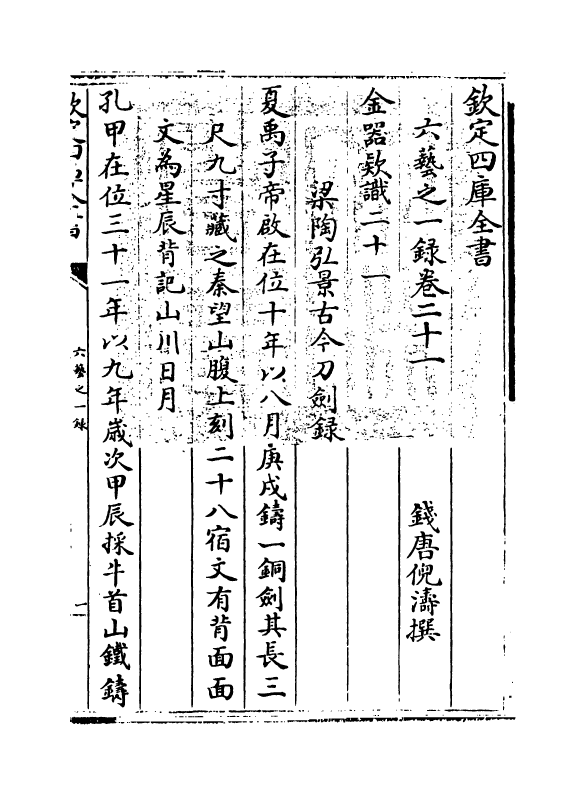 欽定四庫全書
六藝之一録卷二十一
錢唐倪濤撰
金器欵識二十一
梁陶弘景古今刀劍録
夏禹子帝啟在位十年以八月庚戌鑄一銅劍其長三
尺九寸藏之秦望山腹上刻二十八宿文有背面面
文為星辰背記山川日月
孔甲在位三十一年以九年歲次甲辰採牛首山鐵鑄
六藝之一録
一